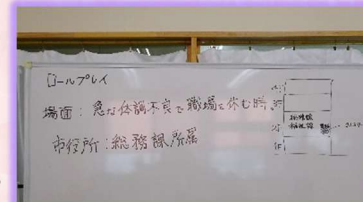 ロールプレイ
場面：急な体調不良で職場を休む時
市役所：総務課所属